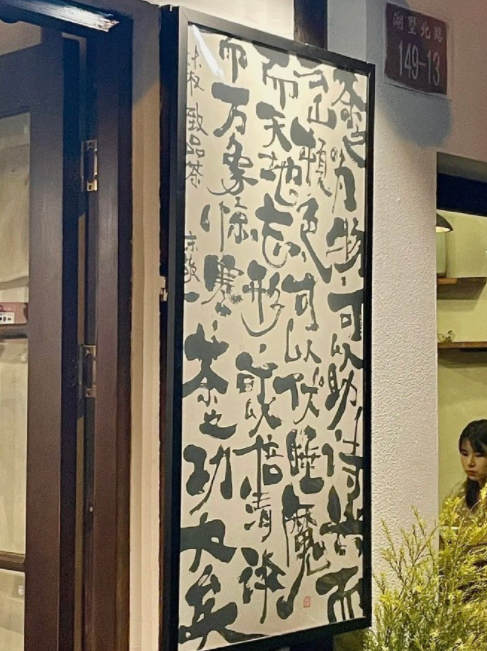 湖墅北路
149-13
茶之为物可以助诗兴而
云山顿色可以伏睡魔
而天地忘形可以倍清谈
而万象惊寒茶之功大矣
朱权 致品茶